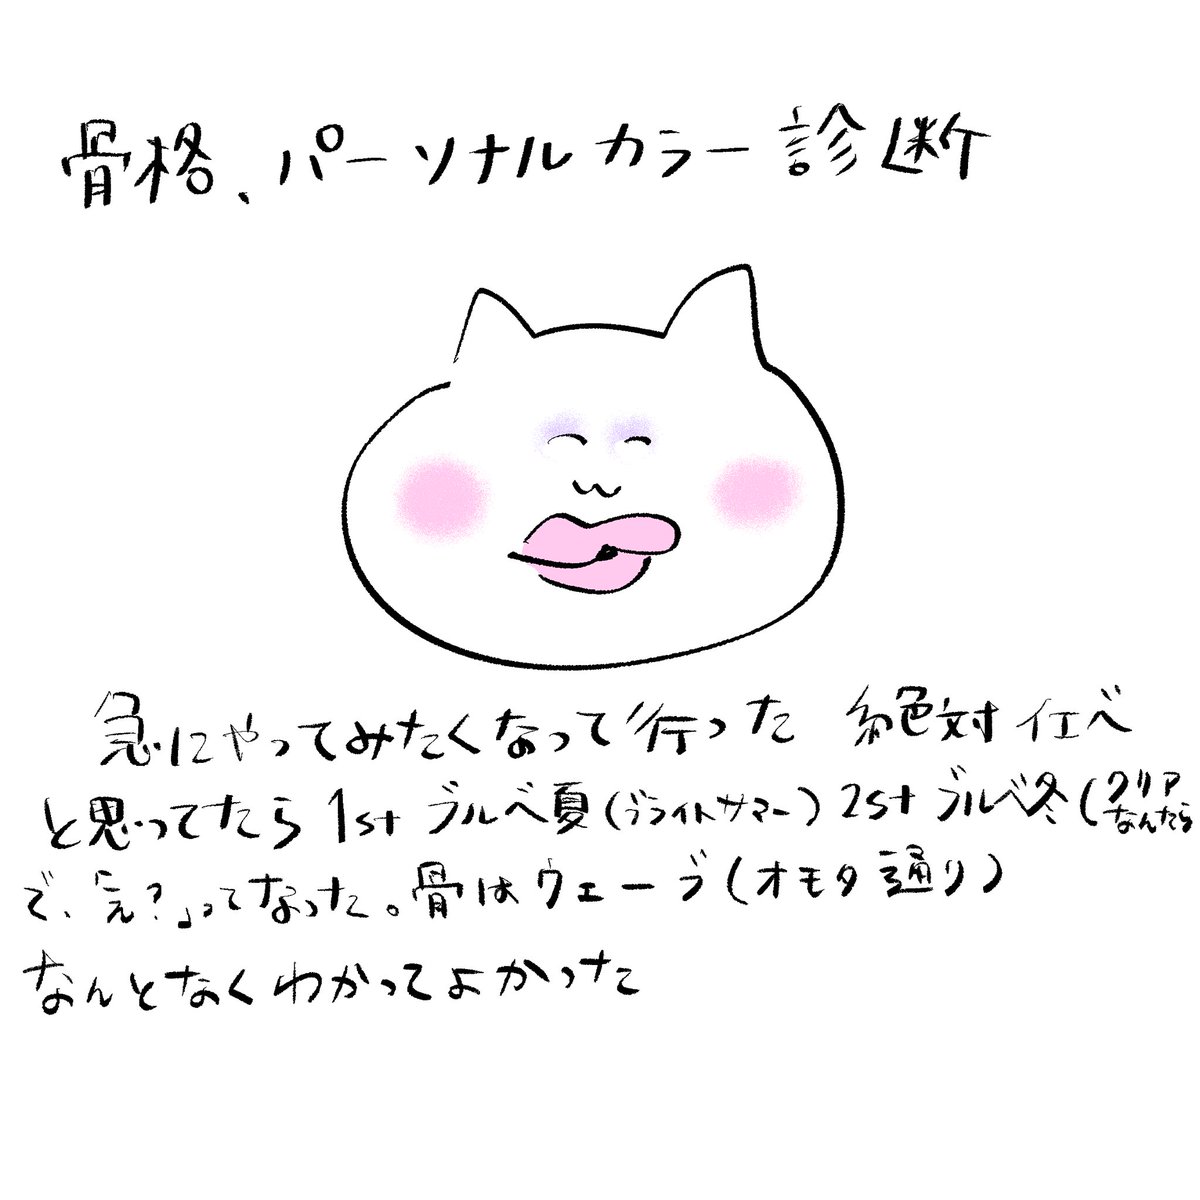 骨格、パーソナルカラー診断
急にやってみたくなって行った 絶対イエベ
と思ってたら 1st ブルベ夏(ブライトサマー) 2st ブルベ冬(クリアなんたら
で、「え?」ってなった。骨はウェーブ(オモタ通り)
なんとなくわかってよかった